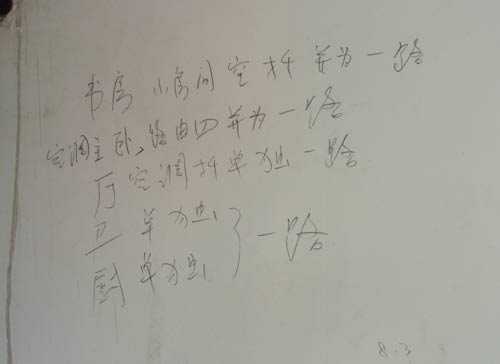 书房 小房间 空 扦 并为一路
空调主卧, 并为一路
厅空调扦单独一路
卫 单独
厨 单独 } 一路
8.3